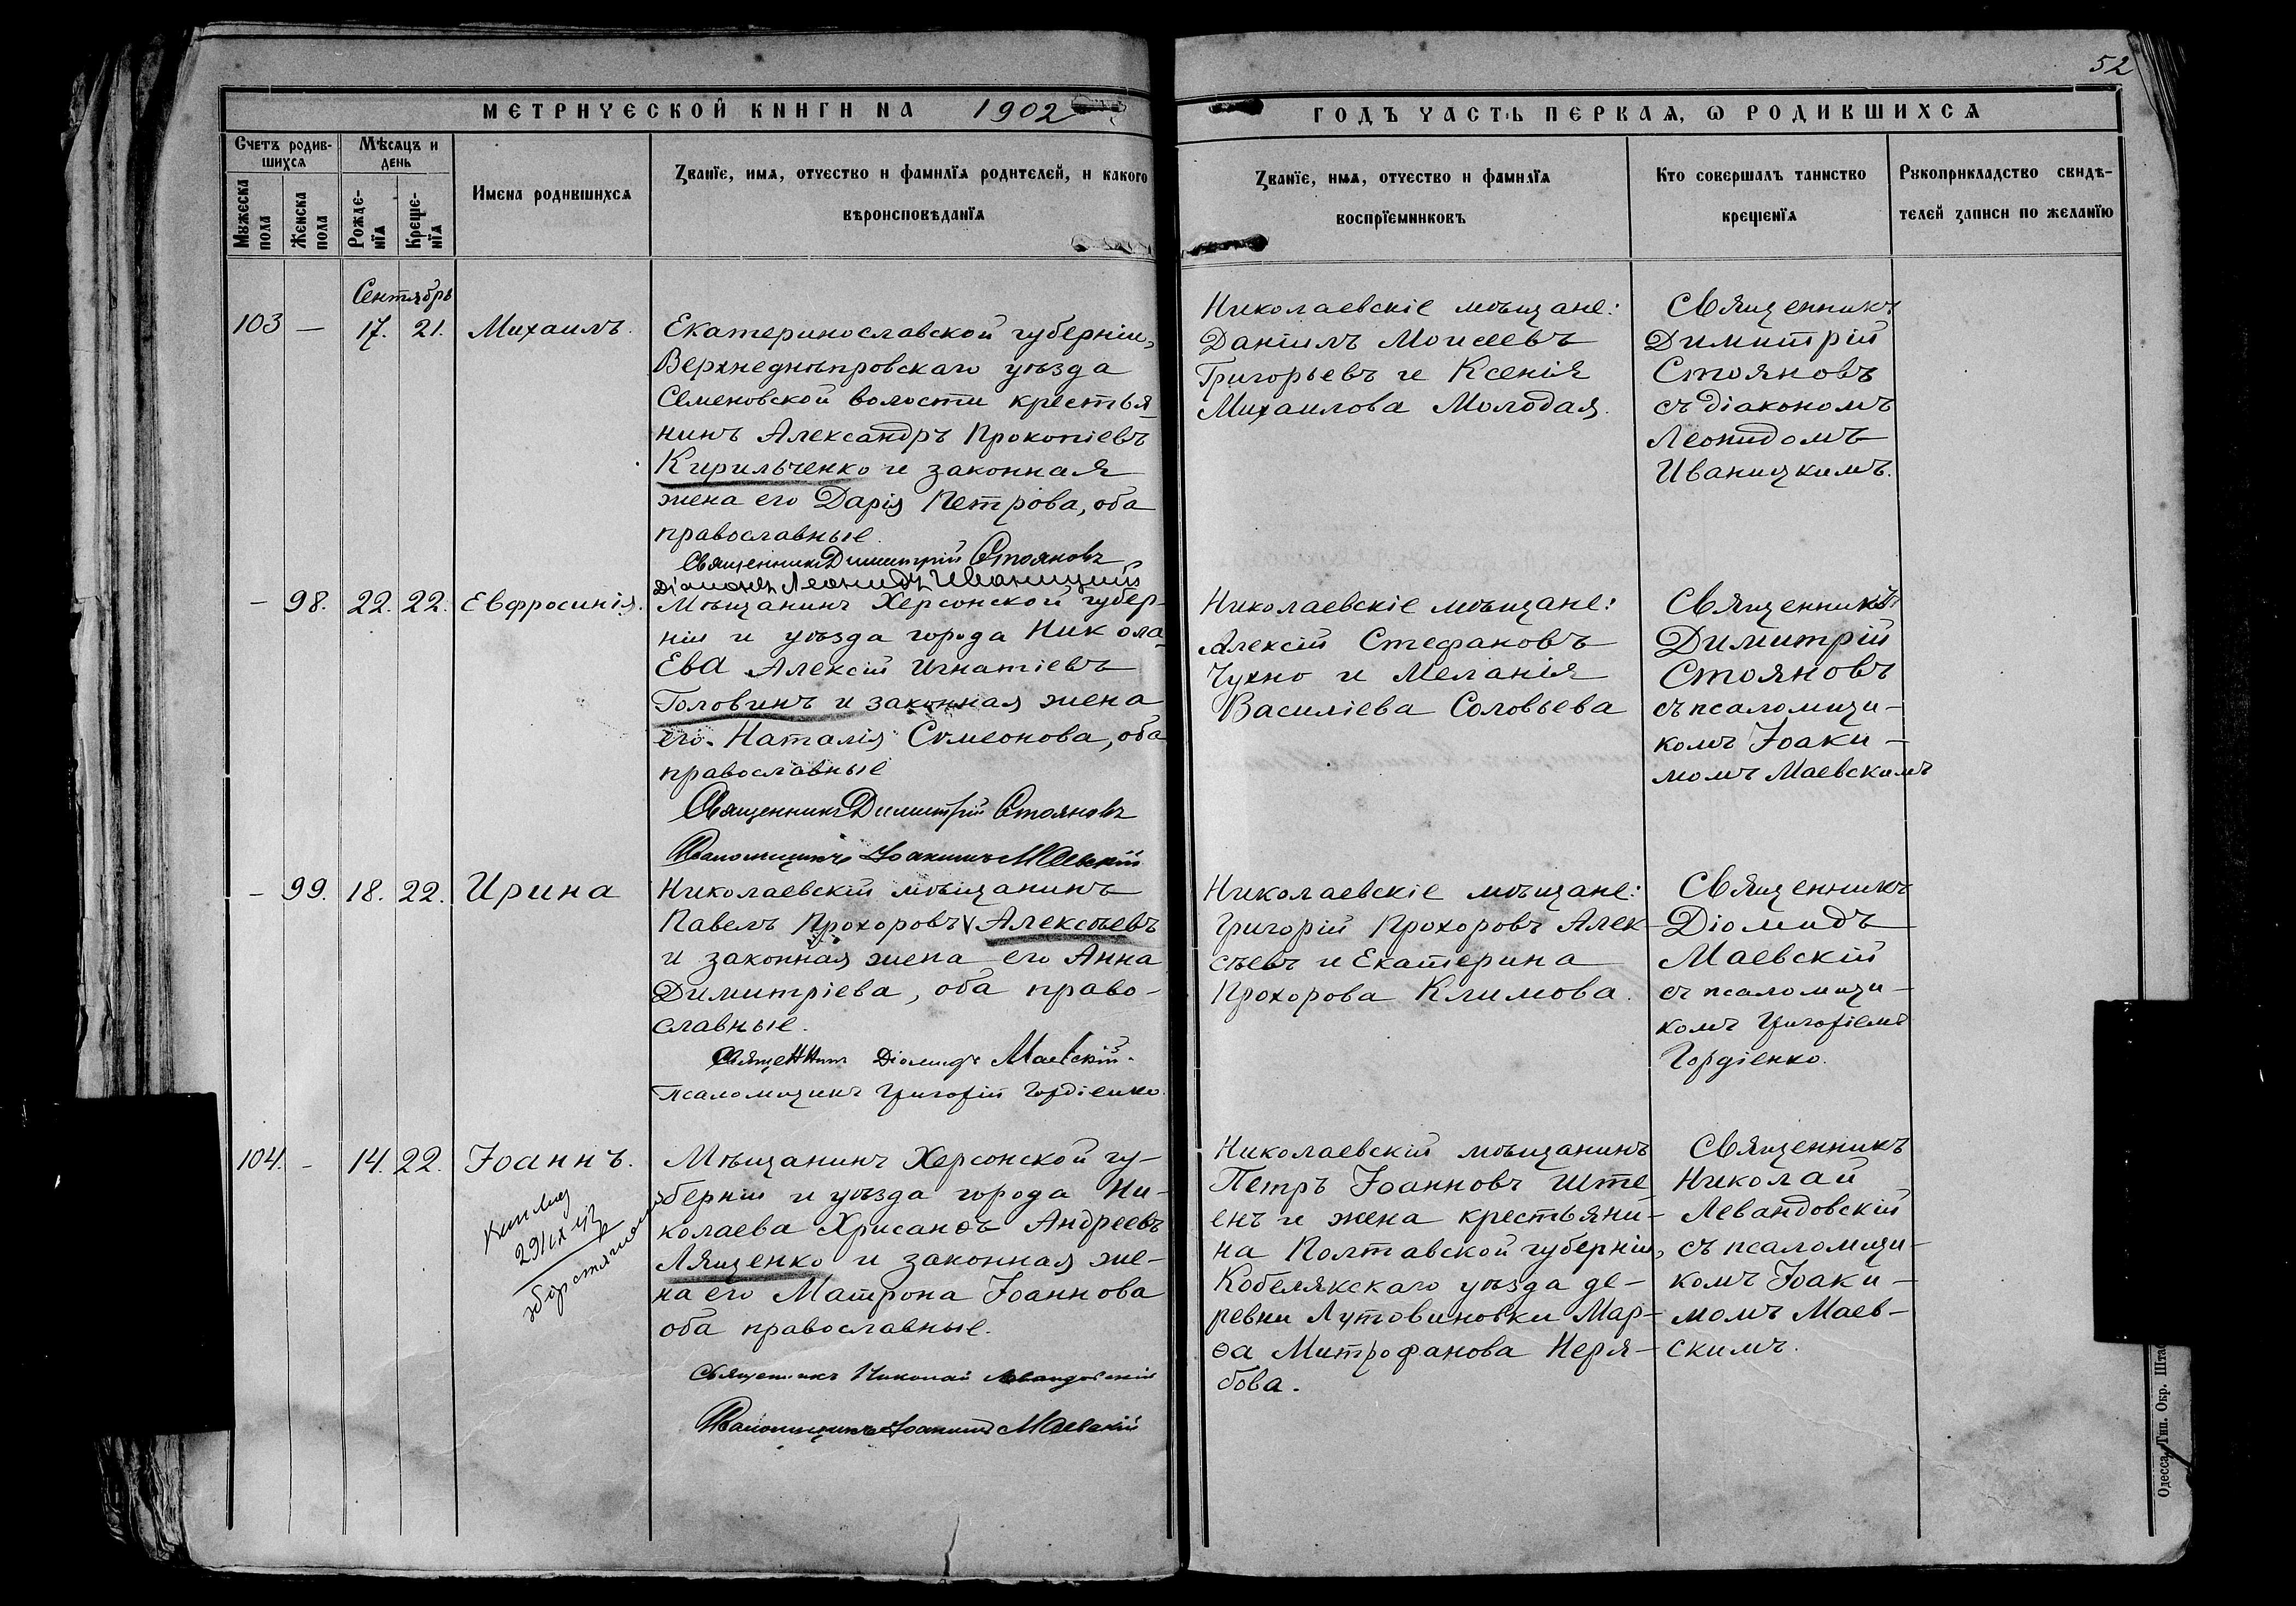 52
МЕТРИЧЕСКОЙ КНИГИ НА 1902
ГОДЪ ЧАСТЬ ПЕРВАЯ, Ѡ РОДИВШИХСЯ
Счетъ родив-
шихся
Мѣсяцъ и
день
Мужеска
пола
Женска
пола
Рожде-
нїя
Креще-
нїя
Имена родившихся
Званїе, имя, отчество и фамилїя родителей, и какого
вѣроисповѣданїя
Званїе, имя, отчество и фамилїя
воспрїемниковъ
Кто совершалъ таинство
крещенїя
Рукоприкладство свидѣ-
телей записи по желанїю
Сентябрь
103 — 17. 21. Михаилъ.
Екатеринославской губерніи,
Верхнеднѣпровскаго уѣзда
Семеновской волости крестья-
нинъ Александръ Прокопіевъ
Кирильченко и законная
жена его Дарія Петрова, оба
православные.
Священникъ Димитрій Стояновъ
Діаконъ Леонидъ Иваницкій
Николаевскіе мѣщане:
Даніилъ Моисеевъ
Григорьевъ и Ксенія
Михаилова Молодая.
Священникъ
Димитрій
Стояновъ
съ діакономъ
Леонидомъ
Иваницкимъ.
— 98. 22. 22. Евфросинія.
Мѣщанинъ Херсонской губер-
ніи и уѣзда города Никола-
ева Алексій Игнатіевъ
Головинъ и законная жена
его Наталія Симеонова, оба
православные
Священникъ Димитрій Стояновъ
Псаломщикъ Іоакимъ Маевскій
Николаевскіе мѣщане:
Алексій Стефановъ
Чухно и Меланія
Василіева Соловьева
Священникъ
Димитрій
Стояновъ
съ псаломщи-
комъ Іоаки-
момъ Маевскимъ
— 99. 18. 22. Ирина
Николаевскій мѣщанинъ
Павелъ Прохоровъ Алексѣевъ
и законная жена его Анна
Димитріева, оба право-
славные.
Священникъ Діомидъ Маевскій.
Псаломщикъ Григорій Гордіенко.
Николаевскіе мѣщане:
Григорій Прохоровъ Алек-
сѣевъ и Екатерина
Прохорова Климова.
Священникъ
Діомидъ
Маевскій
съ псаломщи-
комъ Григоріемъ
Гордіенко.
104. — 14. 22. Іоаннъ.
Мѣщанинъ Херсонской гу-
берніи и уѣзда города Ни-
колаева Хрисанѳъ Андреевъ
Лященко и законная же-
на его Матрона Іоаннова
оба православные.
Священникъ Николай Левандовскій
Псаломщикъ Іоакимъ Маевскій
Николаевскій мѣщанинъ
Петръ ІоанновъШте-
енъ и жена крестьяни-
на Полтавской губерніи,
Кобелякскаго уѣзда де-
ревни Лутовиновки Мар-
ѳа Митрофанова Неря-
бова.
Священникъ
Николай
Левандовскій
съ псаломщи-
комъ Іоаки-
момъ Маев-
скимъ.
Одесса, Тип. Окр. Штаб